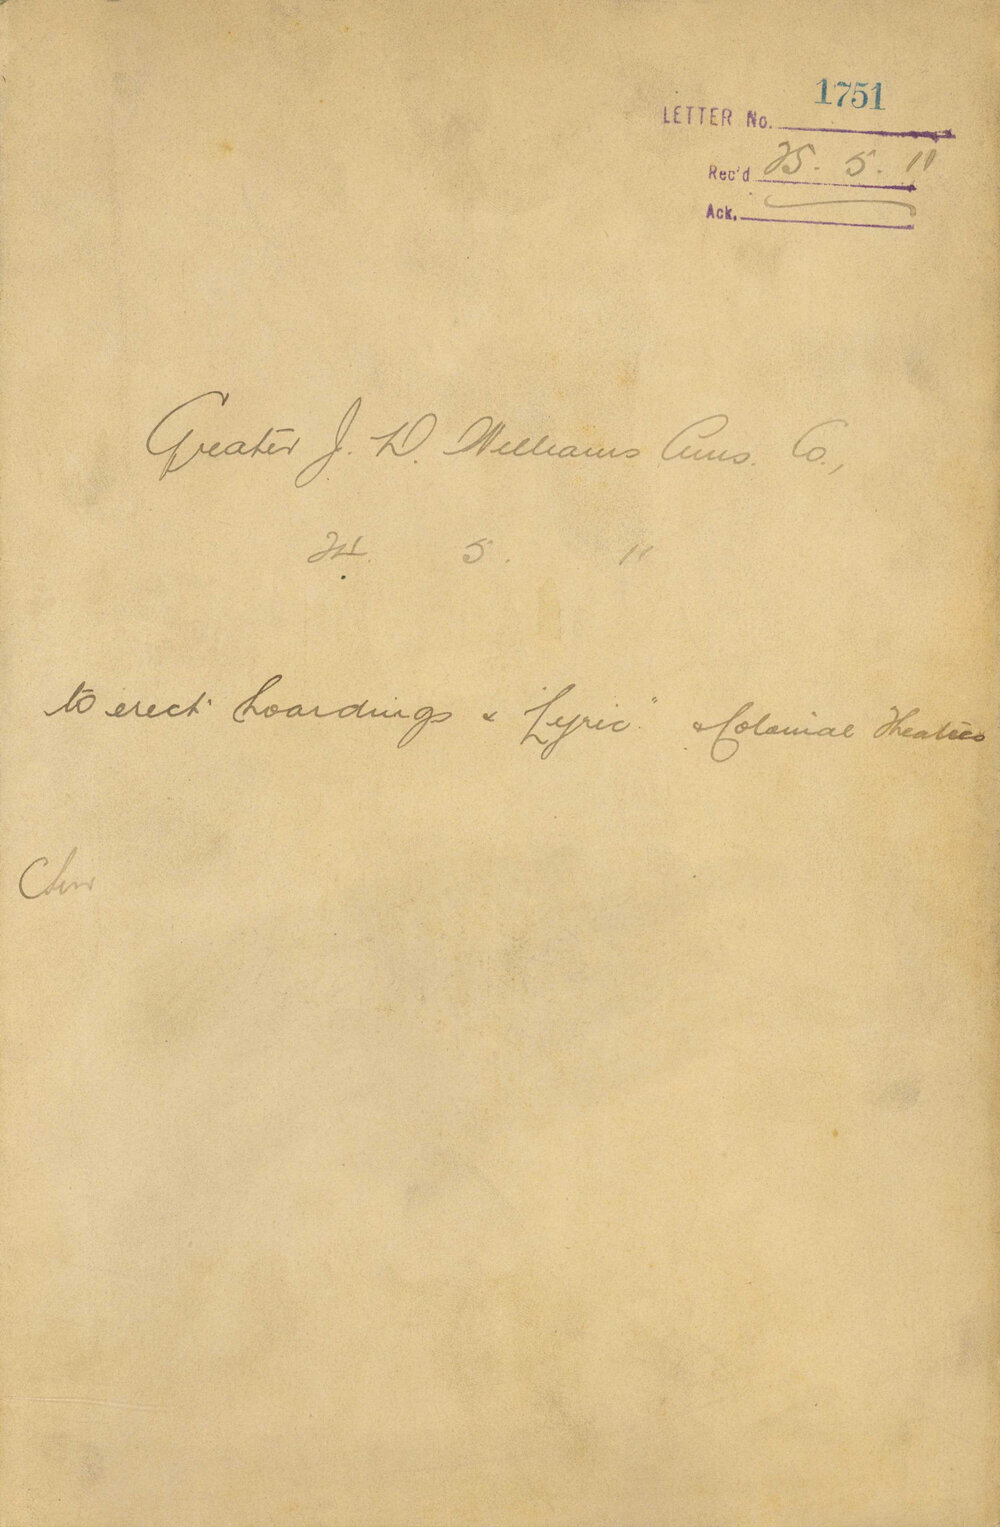 1751
LETTER No.
Rec'd 25. 5. 11
Ack.
Greater J. D. Williams Amus. Co.,
24. 5. 11
to erect hoardings & "Lyric" & Colonial Theatres